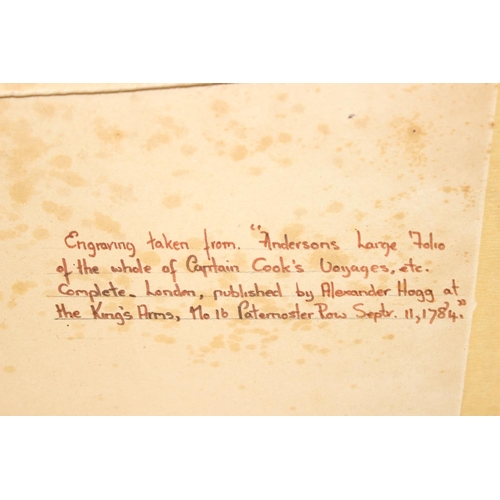 Engraving taken from. "Andersons Large Folio
of the whole of Captain Cook's Voyages, etc.
Complete. London, published by Alexander Hogg at
the King's Arms, No 16 Paternoster Row Septr. 11, 1784."